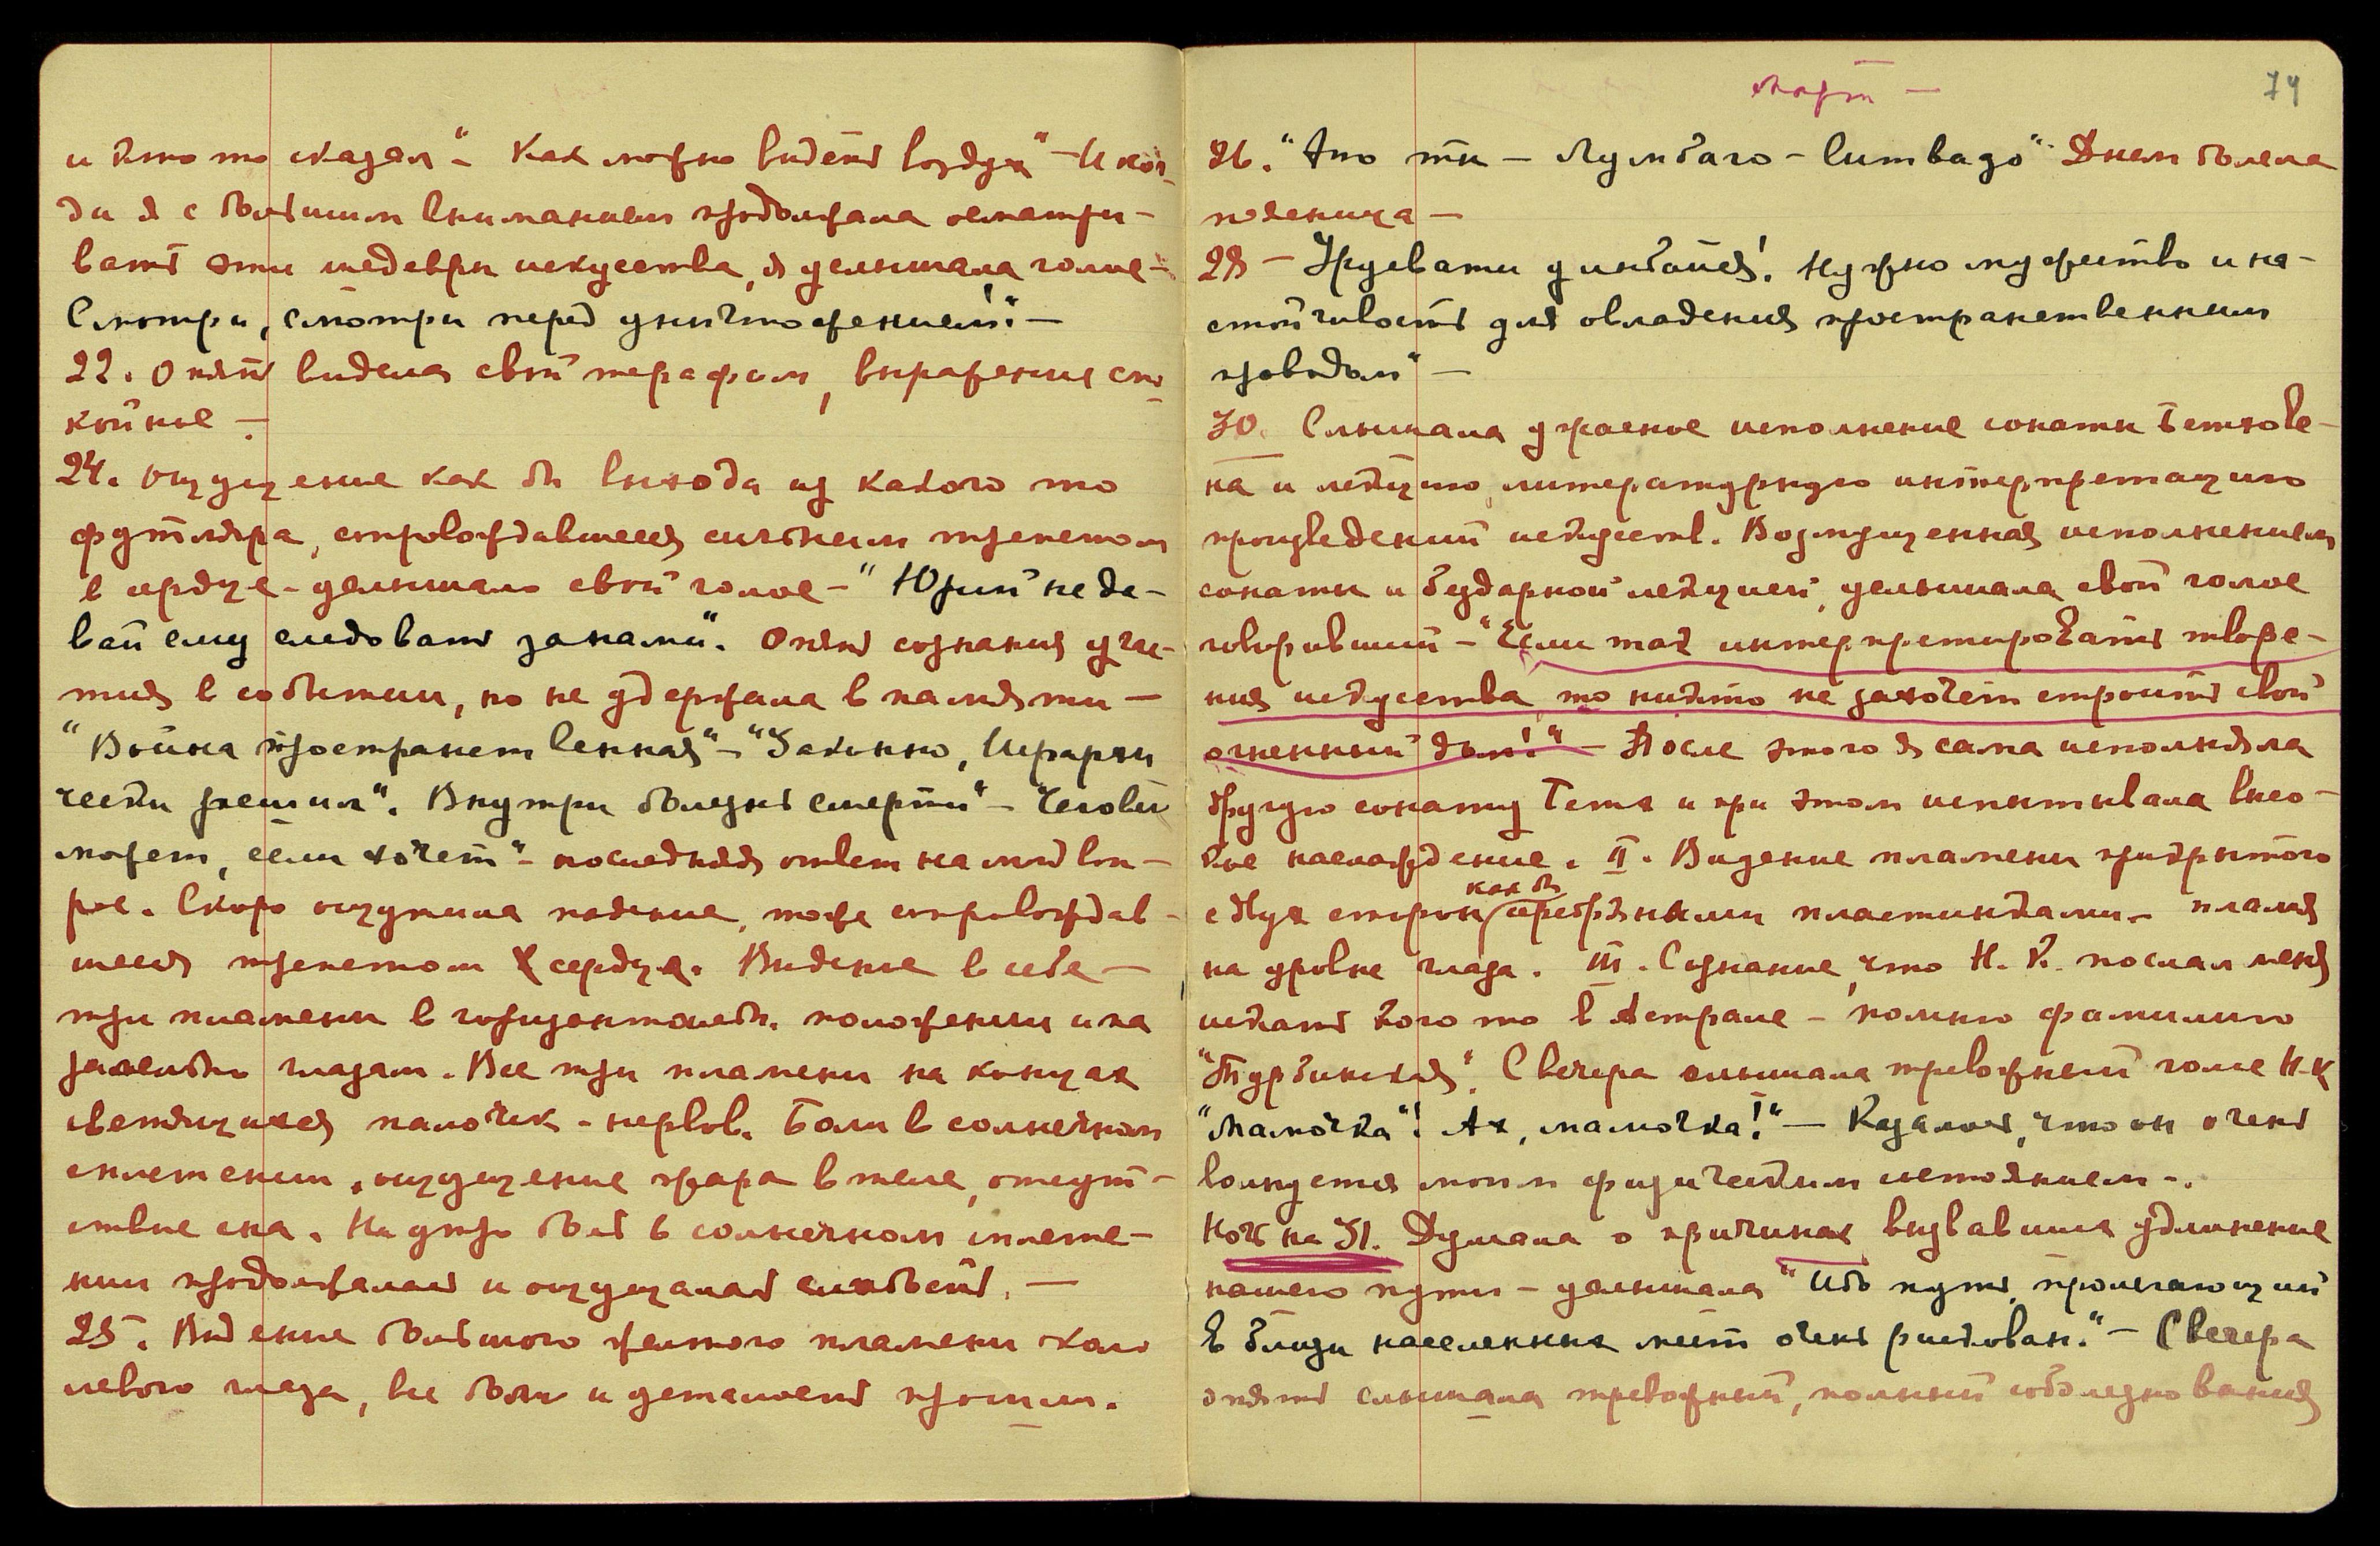 и кто то сказал" – Как можно видеть воздух" – И ког-
да я с большим вниманием продолжала осматри-
вать эти шедевры искусства, я услышала голос –
Смотри, смотри перед уничтожением!" –
22. Опять видела свой терафим, выражение спо
койное –
24. Ощущение как бы выхода из какого то
футляра, сопровождавшееся сильным трепетом
в сердце – услышала свой голос – "Юрий не да-
вай ему следовать за нами". Опять сознания учас-
тия в событии, но не удержала в памяти –
"Война пространственная" – "Законно, Иерархи
чески решил". Внутри болезнь смерти" – "Человек
может, если хочет" – последняя ответ на мой воп-
рос. Скоро ощутила падение, тоже сопровождав-
шееся трепетом сердца. Видение в себе –
три пламени в горизонтальн. положении и на
глазам. Все три пламени на концах
светящихся палочек – нервов. Боли в солнечном
сплетении, ощущение жара в теле, отсут-
ствие сна. На утро боль в солнечном сплете-
нии продолжалась и ощущалась слабость. –
25. Видение большого желтого пламени коло
левого глаза, все боли и усталость прошли.
Март –
74
26. "Ато ти – Лумбаго – " Днем болела
поясница –
28 – Урусвати улыбайся! Нужно мужество и на-
стойчивость для овладения пространственным
проводом" –
30. Слышала ужасное исполнение сонаты Бетхове-
на и лекцию, литературную интерпретацию
произведений искусств. Возмущенная исполнением
сонаты и бездарной лекцией, услышала свой голос
говоривший – "Если так интерпретировать творе-
ния искусства то никто не захочет строить свой
огненный дом!" – После этого я сама исполняла
другую сонату Бетх и при этом испытывала высо-
кое наслаждение. II. Видение пламени прикрытого
как бы
с двух сторон серебряными пластинками – пламя
на уровне глаза. III. Сознание, что Н. К. послал меня
искать кого то в Астрале – помню фамилию
"Турбинская". С вечера слышала тревожный голос Н.К
"Мамочка"! Ах, мамочка!" – Казалось, что он очень
волнуется моим физическим состоянием –.
Ночь на 31. Думала о причинах вызвавших удлинение
нашего пути – услышала "Ибо путь, пролегающий
в близи населенных мест очень рискован." – С вечера
опять слышала тревожный, полный соболезнования